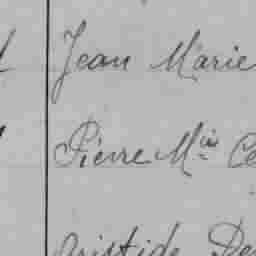 Jean Marie
Pierre Mie Ce
Aristide De